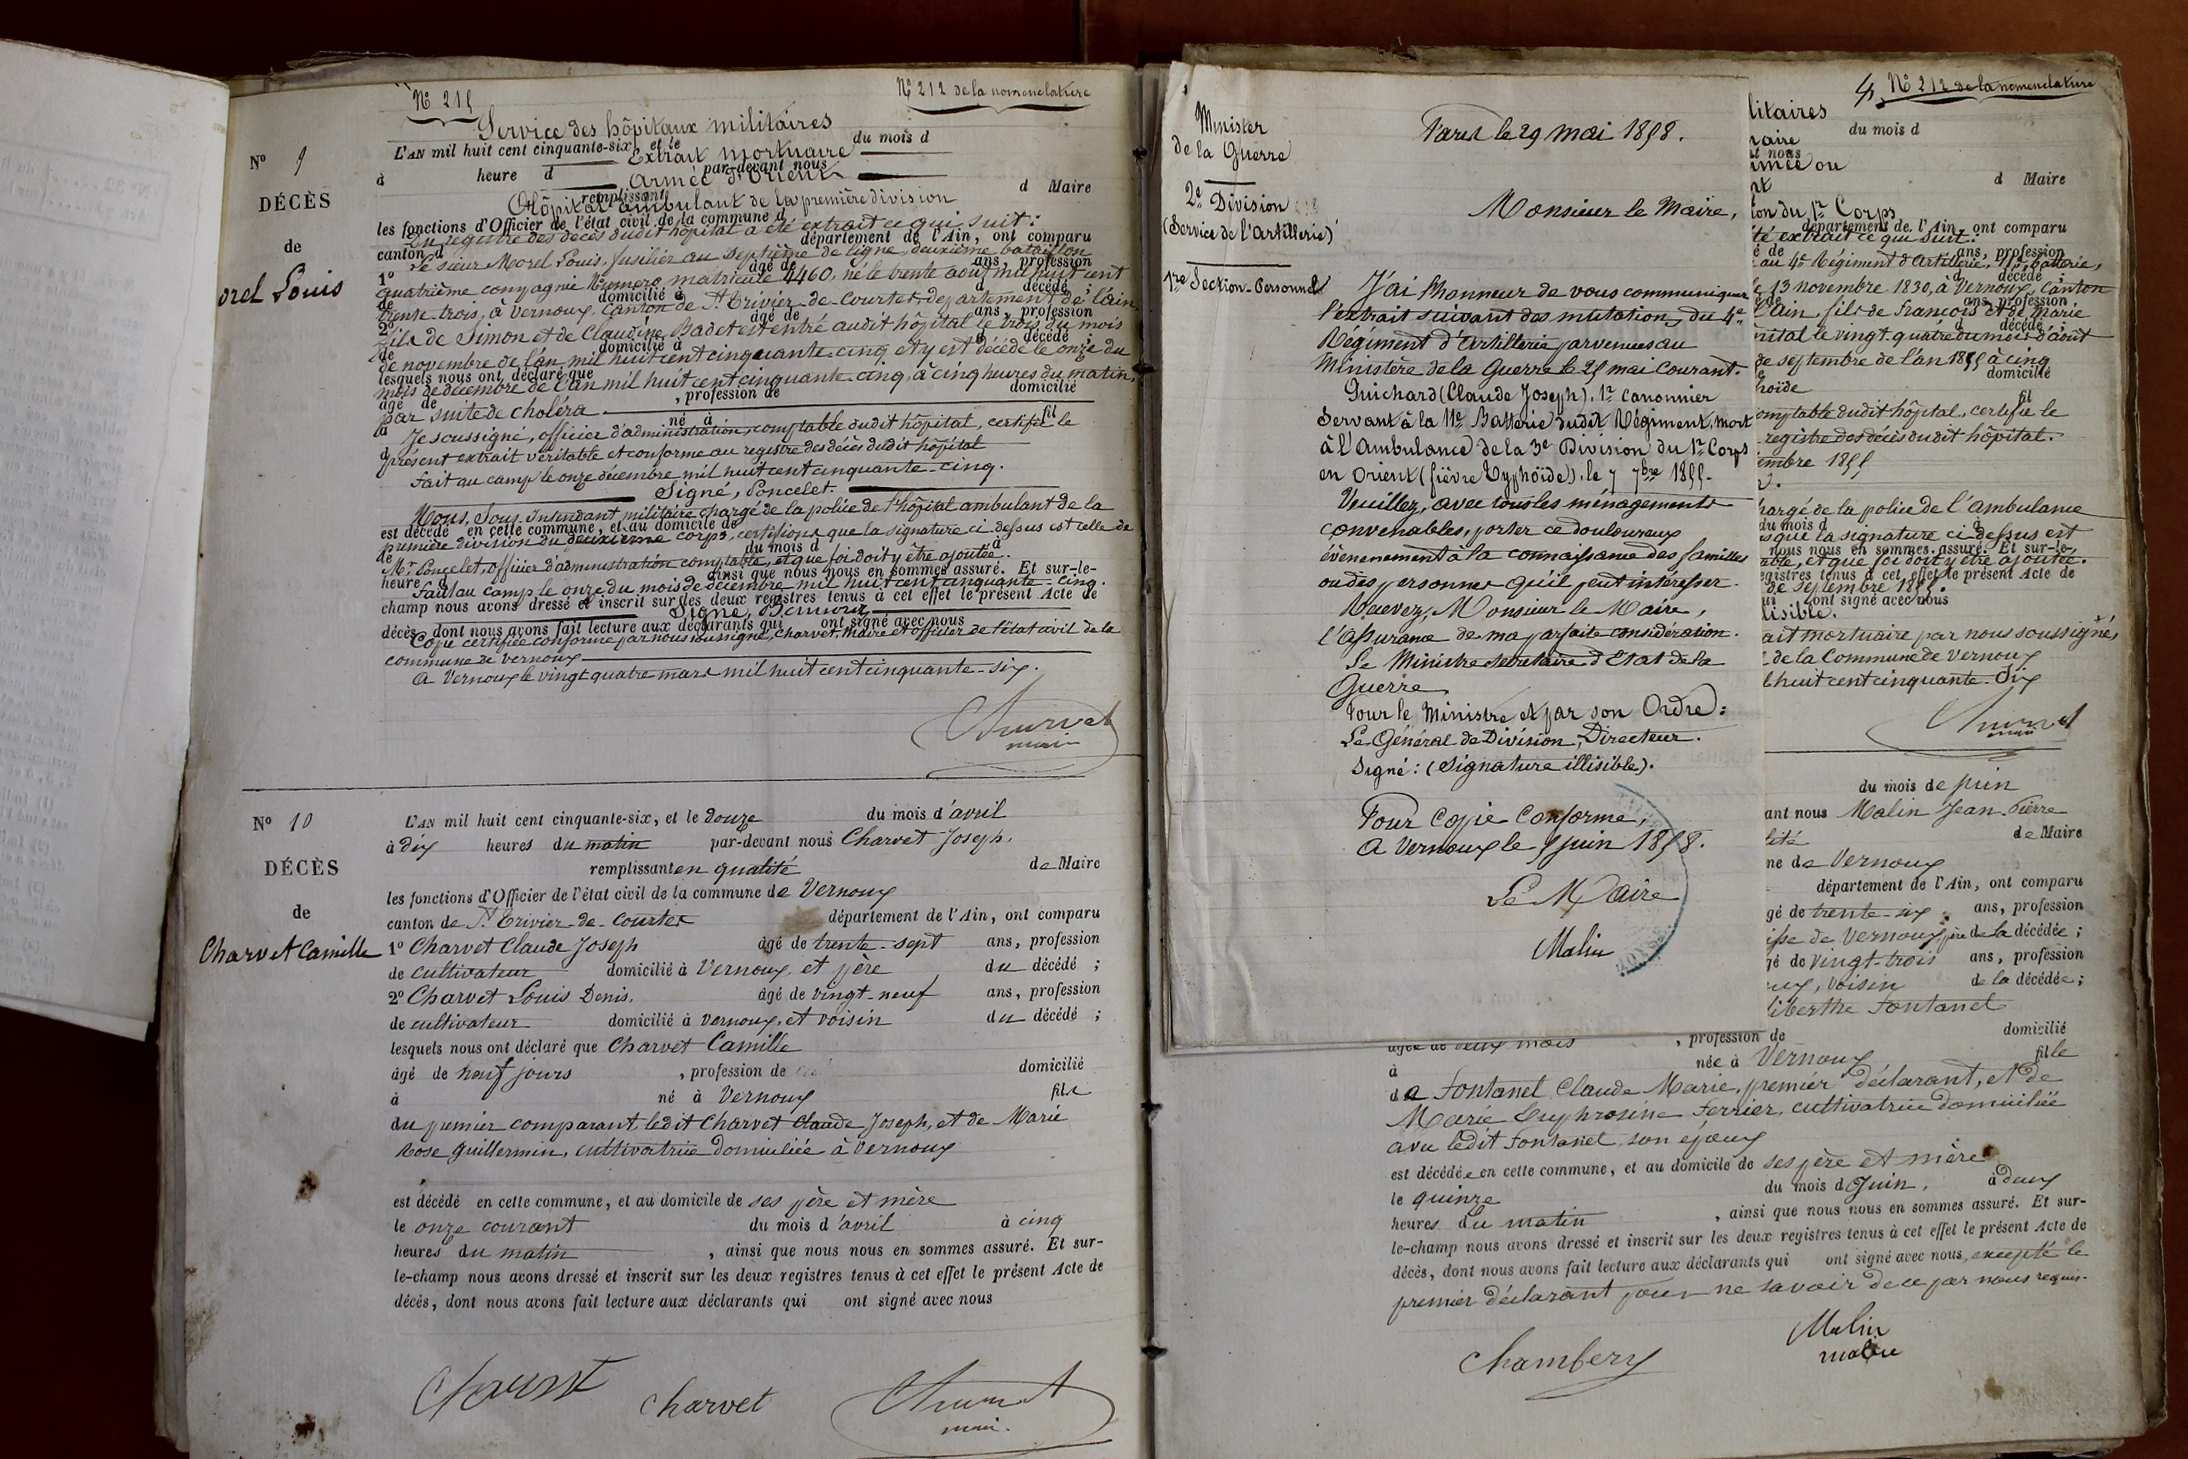 N° 215
N° 212 de la nomenclature
Service des hôpitaux militaires
L'AN mil huit cent cinquante-six, et le du mois d
Extrait mortuaire
à heure d par-devant nous
Armée d'Orient
remplissant d Maire
Hôpital ambulant de la première division
les fonctions d'Officier de l'état civil de la commune d
Du registre des décès dudit hôpital a été extrait ce qui suit:
canton d département de l'Ain, ont comparu
N° 9
DÉCÈS
de
orel Louis
Le sieur Morel Louis, fusilier au Septième de ligne, deuxième bataillon
1° âgé de ans, profession
quatrième compagnie Numéro matricule 4460, né le trente août mil huit cent
de domicilié à d décédé ;
trente trois, à Vernoux, Canton de St Trivier-de-Courtes, département de l'ain
2° âgé de ans, profession
fils de Simon et de Claudine Badet est entré audit hôpital le trois du mois
de domicilié à d décédé ;
de novembre de l'an mil huit cent cinquante-cinq et y est décédé le onze du
lesquels nous ont déclaré que
mois de décembre de l'an mil huit cent cinquante-cinq, à cinq heures du matin,
âgé de , profession de domicilié
par suite de choléra
à né à fil
Je soussigné, officier d'administration, comptable dudit hôpital, certifie le
d
présent extrait véritable et conforme au registre des décès dudit hôpital
Fait au camp le onze décembre mil huit cent cinquante-cinq.
Signé, Poncelet.
Nous, Sous-Intendant militaire chargé de la police de l'hôpital ambulant de la
est décédé en cette commune, et au domicile de
première division du deuxième corps, certifions que la signature ci-dessus est celle de
le du mois d à
Mr Poncelet, officier d'administration comptable, et que foi doit y être ajoutée.
heure d ainsi que nous nous en sommes assuré. Et sur-le-
Fait au camp le onze du mois de décembre mil huit cent cinquante-cinq.
champ nous avons dressé et inscrit sur les deux registres tenus à cet effet le présent Acte de
Signé,
décès, dont nous avons fait lecture aux déclarants qui ont signé avec nous
Copie certifiée conforme par nous soussigné, Charvet, Maire et officier de l'état civil de la
commune de Vernoux
A Vernoux le vingt quatre mars mil huit cent cinquante-six.
Charvet
maire
N° 10
DÉCÈS
de
Charvet Camille
L'AN mil huit cent cinquante-six, et le douze du mois d'avril
à dix heures du matin par-devant nous Charvet Joseph,
remplissant en qualité de Maire
les fonctions d'Officier de l'état civil de la commune de Vernoux
canton de St Trivier-de-Courtes département de l'Ain, ont comparu
1° Charvet Claude Joseph âgé de trente-sept ans, profession
de cultivateur domicilié à Vernoux, et père du décédé ;
2° Charvet Louis Denis, âgé de vingt-neuf ans, profession
de cultivateur domicilié à Vernoux, et voisin du décédé ;
lesquels nous ont déclaré que Charvet Camille
âgé de neuf jours , profession de domicilié
à né à Vernoux fils
du premier comparant ledit Charvet Claude Joseph, et de Marie
Rose Guillermin, cultivatrice domiciliée à Vernoux
est décédé en cette commune, et au domicile de ses père et mère
le onze courant du mois d'avril à cinq
heures du matin , ainsi que nous nous en sommes assuré. Et sur-
le-champ nous avons dressé et inscrit sur les deux registres tenus à cet effet le présent Acte de
décès, dont nous avons fait lecture aux déclarants qui ont signé avec nous
Charvet
Charvet
Charvet
maire
Minister
de la Guerre
2e Division
(Service de l'Artillerie)
1re Section-Personnel
Paris le 29 mai 1858.
Monsieur le Maire,
J'ai l'honneur de vous communiquer
l'extrait suivant des mutations du 4e
Régiment d'Artillerie parvenues au
Ministère de la Guerre le 25 mai courant.
Guichard (Claude Joseph), 1r Canonnier
Servant à la 11e Batterie dudit Régiment, mort
à l'Ambulance de la 3e Division du 1r Corps
en Orient (fièvre typhoïde), le 7 7bre 1855.
Veuillez, avec tous les ménagements
convenables, porter ce douloureux
évènement à la connaissance des familles
ou des personnes qu'il peut intéresser.
Recevez, Monsieur le Maire,
l'assurance de ma parfaite considération.
Le Ministre secrétaire d'Etat de la
Guerre
Pour le Ministre et par son Ordre:
Le Général de Division, Directeur.
Signé: (Signature illisible).
Pour Copie Conforme,
A Vernoux le 5 juin 1858.
Le Maire
Malin
N° 212 de la nomenclature
litaires
du mois d
uaire
nt nous
rmée ou
d Maire
ion du 1r Corps
département de l'Ain, ont comparu
té extrait ce qui suit:
é de ans, profession
au 4e Régiment d'Artillerie, 11e Batterie,
d décédé ;
13 novembre 1830, à Vernoux, Canton
é de ans, profession
l'ain, fils de François et de Marie
d décédé ;
pital le vingt-quatre du mois d'août
de septembre de l'an 1855 à cinq
domicilié
hoïde
fil
omptable dudit hôpital, certifie le
registre des décès dudit hôpital.
embre 1855
hargé de la police de l'ambulance
du mois d à
que la signature ci-dessus est
nous nous en sommes assuré. Et sur-le-
able, et que foi doit y être ajoutée.
egistres tenus à cet effet le présent Acte de
de Septembre 1855.
ui ont signé avec nous
lisible.
ait mortuaire par nous soussigné,
de la Commune de Vernoux
l huit cent cinquante-Six
Charvet
maire
du mois de juin
ant nous Malin Jean Pierre
lité de Maire
ne de Vernoux
département de l'Ain, ont comparu
gé de trente-six ans, profession
de Vernoux, père de la décédée ;
gé de vingt-trois ans, profession
ux, voisin de la décédée ;
liberthe Fontanel
âgée de deux mois , profession de domicilié
à née à Vernoux fille
de Fontanel Claude Marie, premier déclarant, et de
Marie Euphrosine Ferrier, cultivatrice domiciliée
avec ledit Fontanel, son époux
est décédée en cette commune, et au domicile de ses père et mère
le quinze du mois d Juin, à deux
heures du matin , ainsi que nous nous en sommes assuré. Et sur-
le-champ nous avons dressé et inscrit sur les deux registres tenus à cet effet le présent Acte de
décès, dont nous avons fait lecture aux déclarants qui ont signé avec nous, excepté le
premier déclarant pour ne savoir de ce par nous requis.
Chambery
Malin
maire